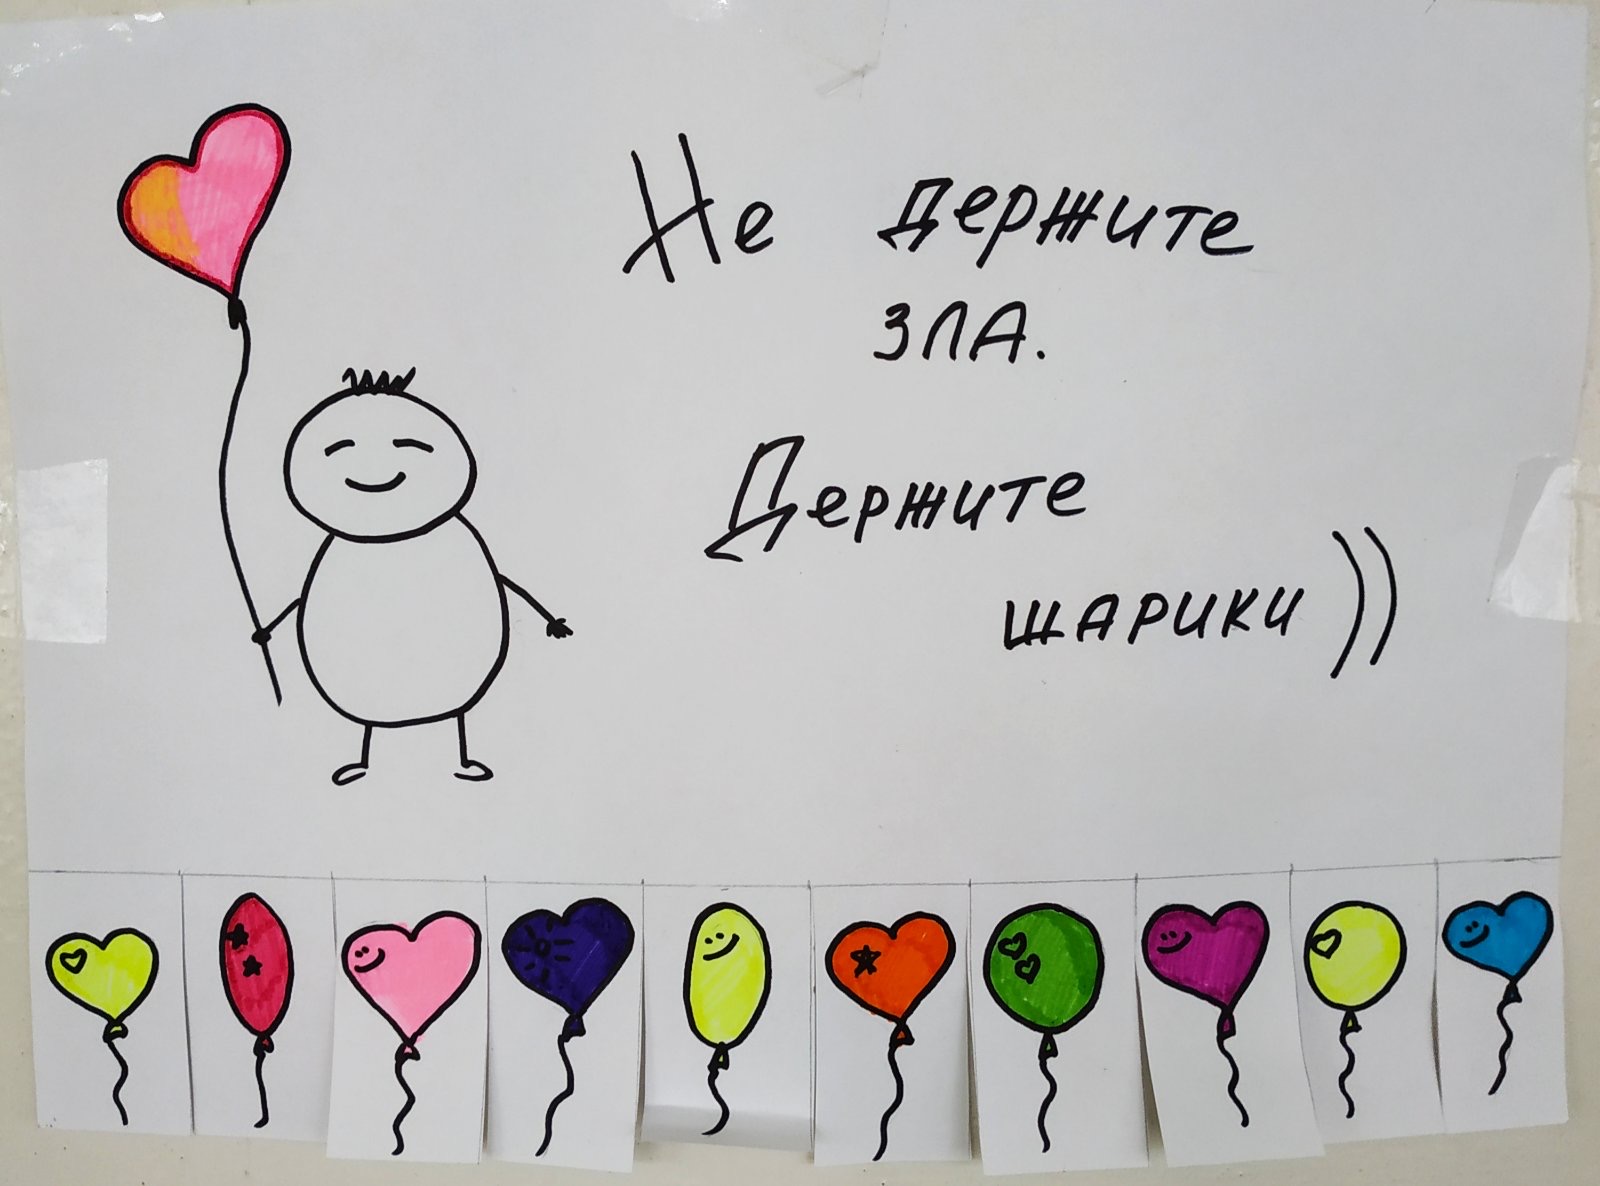 Не держите
зла.
Держите
шарики))